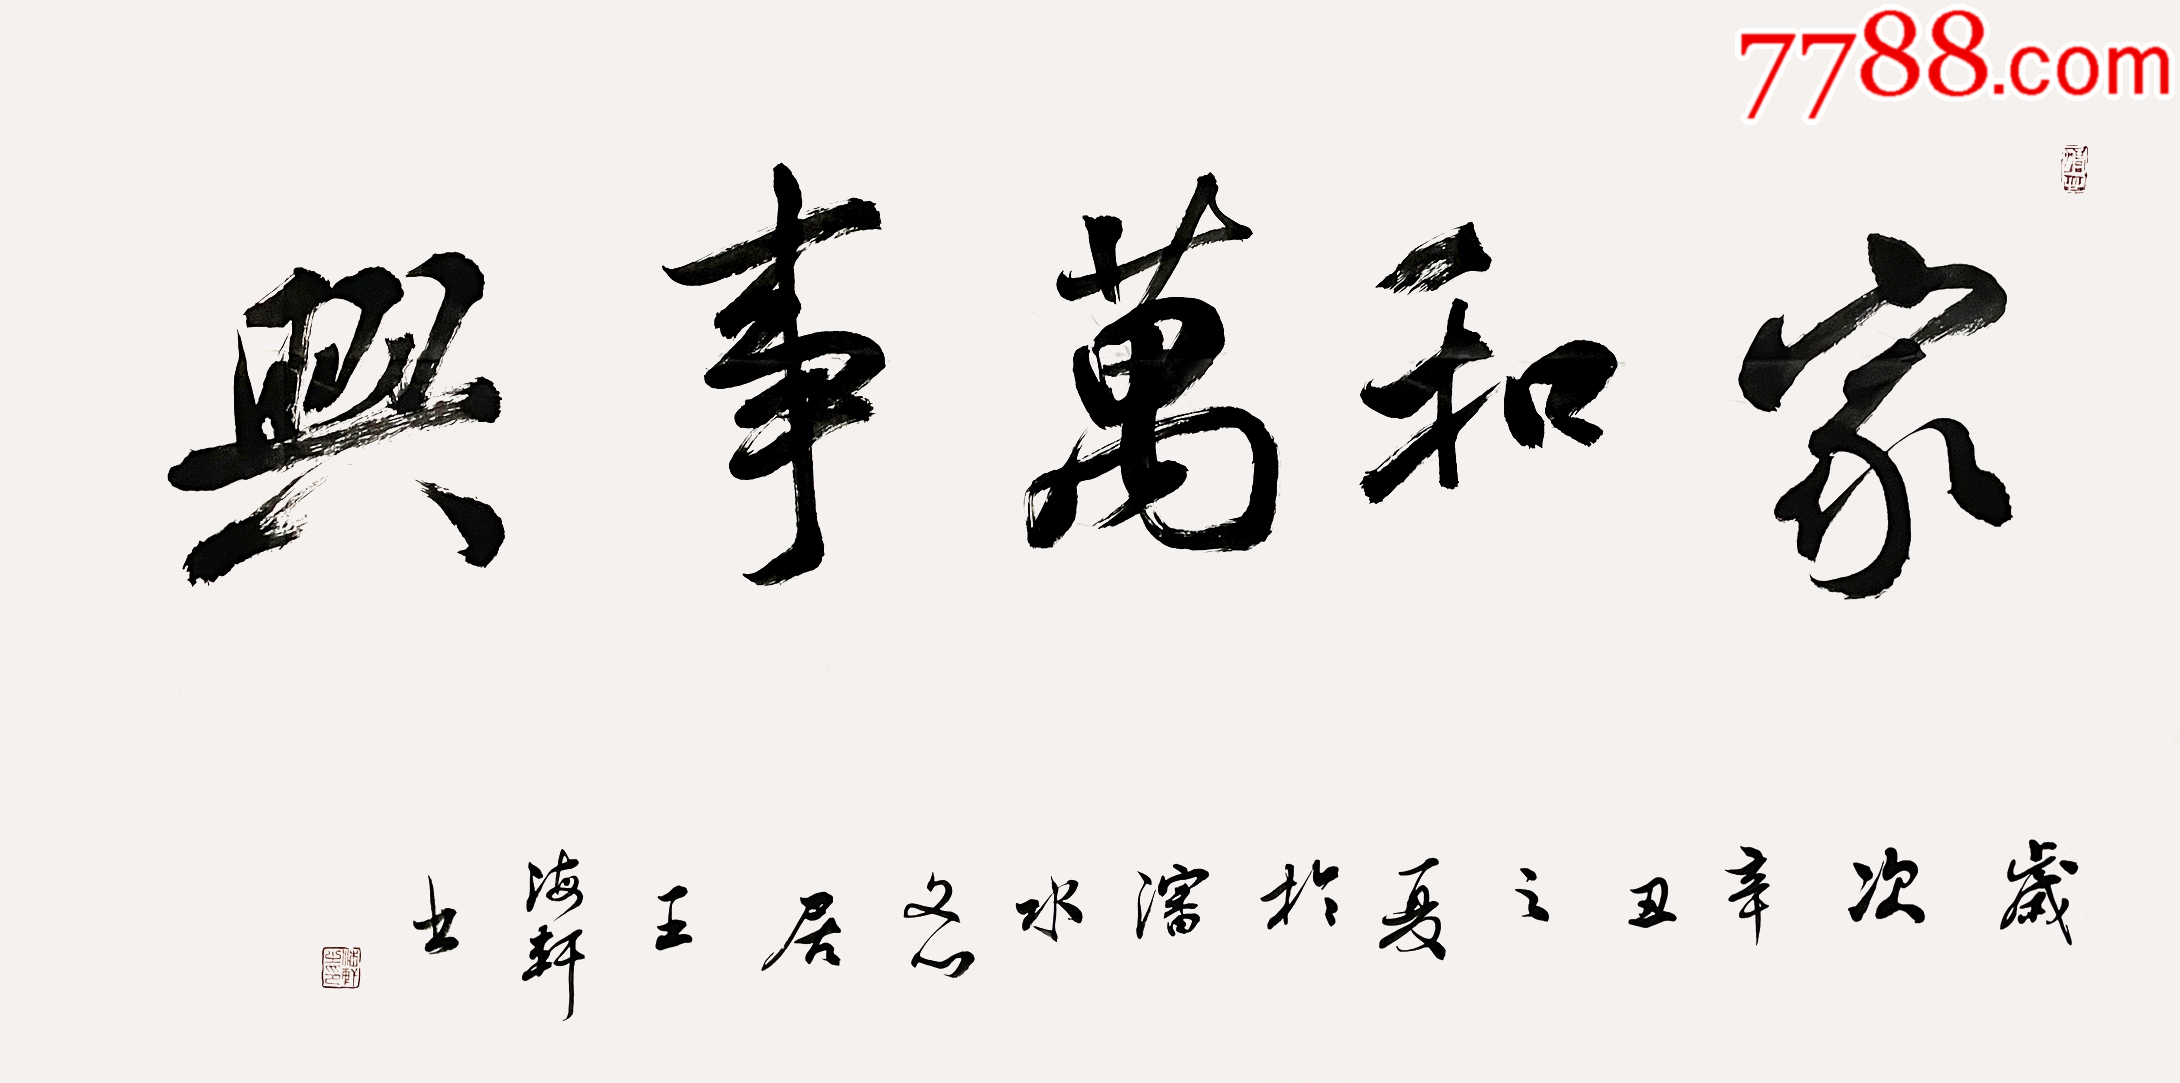 7788.com
家和萬事興
歲次辛丑之夏於瀋水文心居王海軒书